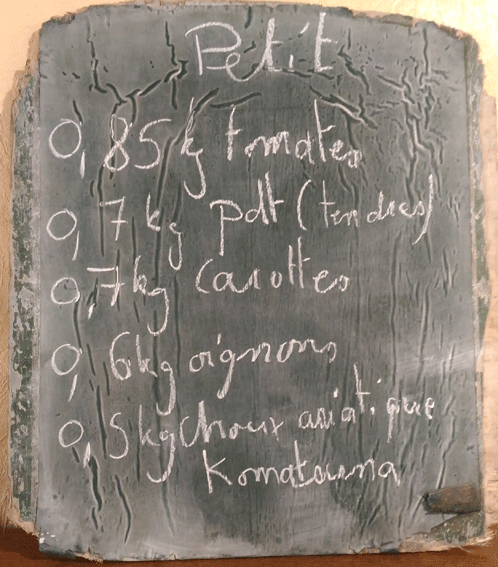 Petit
0,85 kg tomates
0,7 kg pdt (tendres)
0,7 kg carottes
0,6 kg oignons
0,5 kg Choux asiatique
Komatsuna